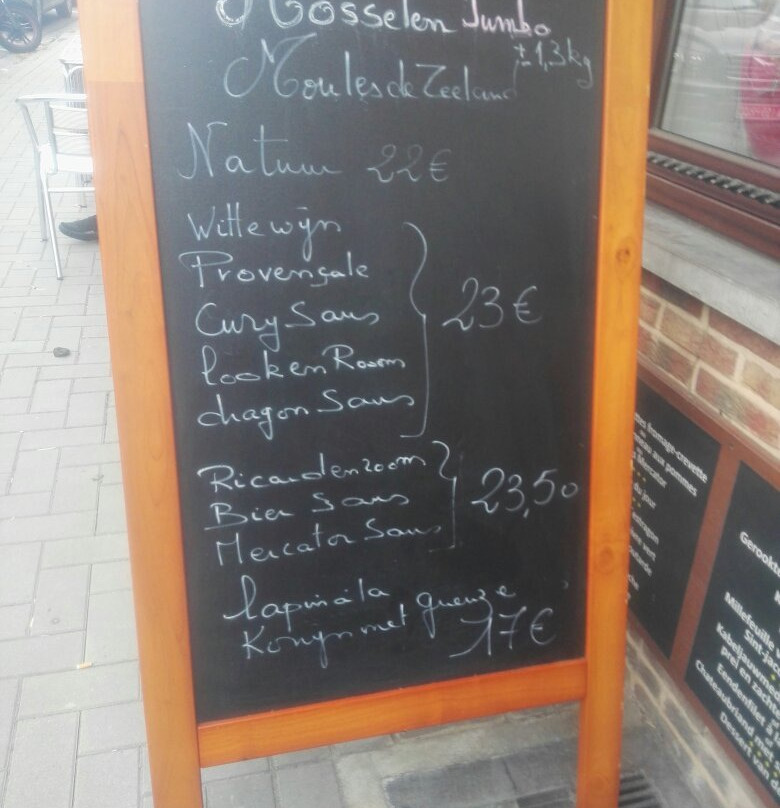 Mosselen Jumbo
± 1,3 kg
Moules de Zeeland
Natuur 22€
Witte wijn
Provençale
Curry Saus
look en Room
dragon Saus
23€
Ricard en room
Bier Saus
Mercator Saus
23,50
lapin à la gueuze
Konijn met
17€
fromage-crevette
aux pommes
Mercator
jour
Gerookte
Millefeuille
Sint-
Kabeljauw
prei en zacht
Eendenfilet
Chateaubriand met
Dessert van